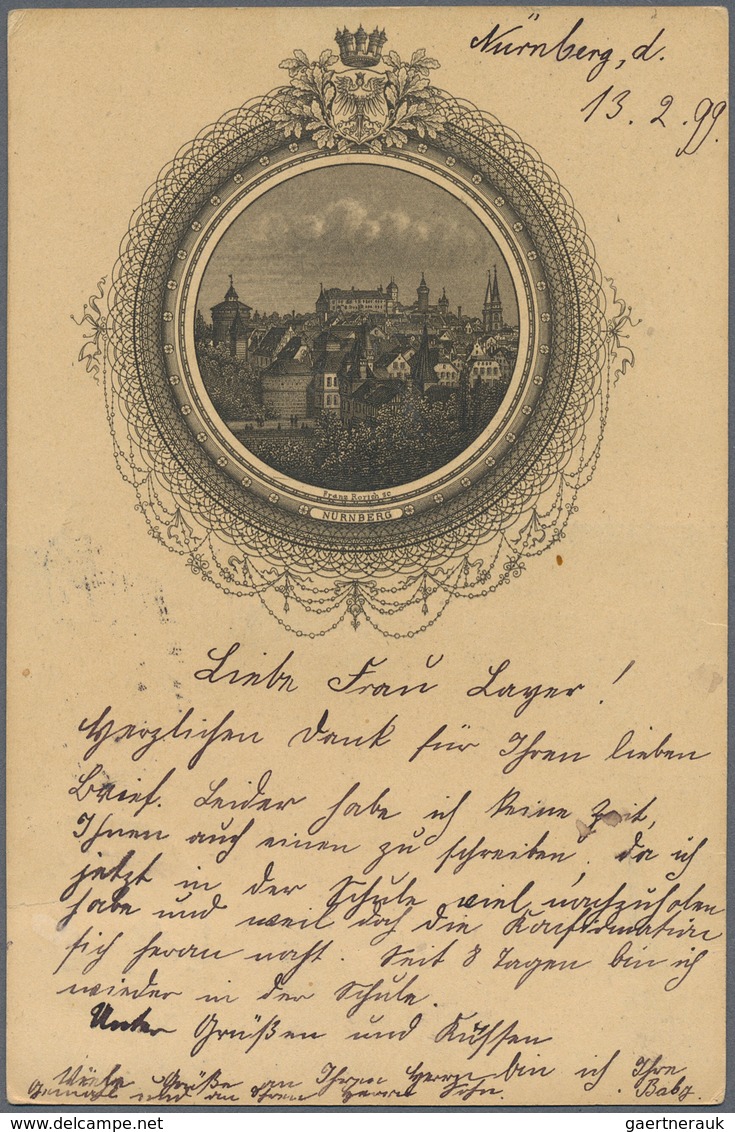 Nürnberg, d.
13. 2. 99.
Franz Rorich sc
NÜRNBERG
Liebe Frau Layer!
Herzlichen Dank für Ihren lieben
Brief. Leider habe ich keine Zeit,
Ihnen auch einen zu schreiben, da ich
jetzt in der Schule viel nachzuholen
habe und weil doch die Konfirmation
sich heran naht. Seit 8 Tagen bin ich
wieder in der Schule.
Unter Grüßen und Küssen
bin ich Ihre
Baby.
Viele Grüße an Ihren Herrn
Gemahl und an Ihren Herrn Sohn.
© gaertnerauk